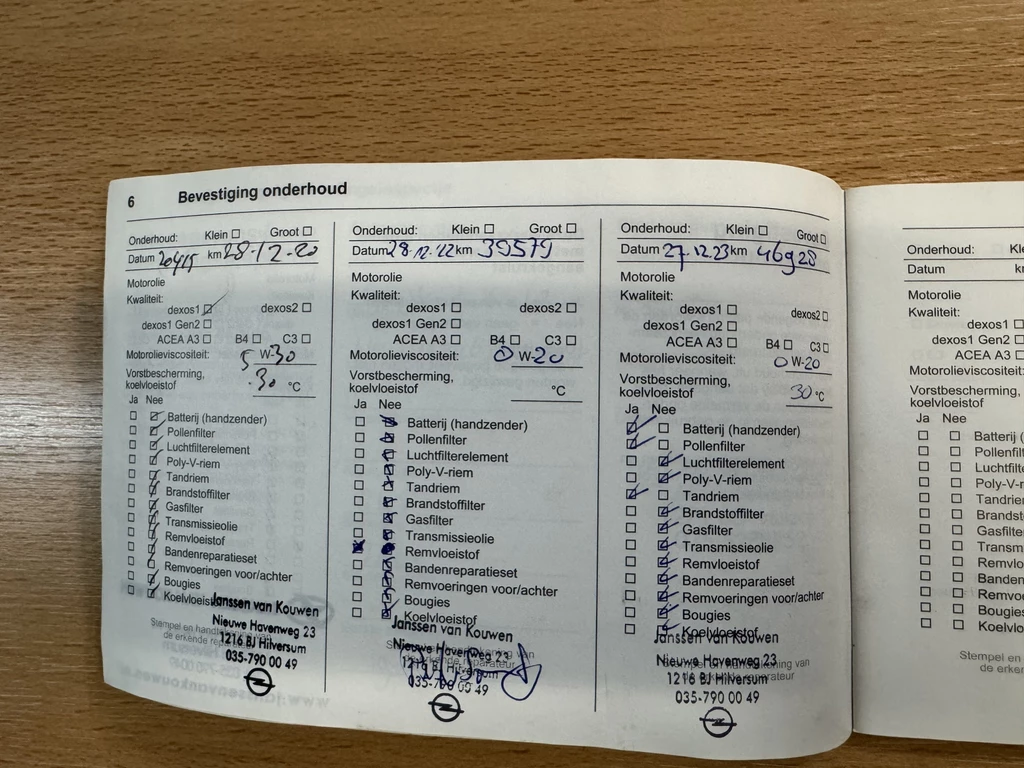 6 Bevestiging onderhoud
Onderhoud: Klein ☐ Groot ☐
Datum 20415 km 28-12-20
Motorolie
Kwaliteit:
dexos1 ☑ dexos2 ☐
dexos1 Gen2 ☐
ACEA A3 ☐ B4 ☐ C3 ☐
Motorolieviscositeit: 5 W-30
Vorstbescherming,
koelvloeistof -30 °C
Ja Nee
Batterij (handzender)
Pollenfilter
Luchtfilterelement
Poly-V-riem
Tandriem
Brandstoffilter
Gasfilter
Transmissieolie
Remvloeistof
Bandenreparatieset
Remvoeringen voor/achter
Bougies
Koelvloeistof
Janssen van Kouwen
Nieuwe Havenweg 23
1216 BJ Hilversum
035-790 00 49
Stempel en handtekening van
de erkende reparateur
Onderhoud: Klein ☐ Groot ☐
Datum 28-12-'22 km 39579
Motorolie
Kwaliteit:
dexos1 ☐ dexos2 ☐
dexos1 Gen2 ☐
ACEA A3 ☐ B4 ☐ C3 ☐
Motorolieviscositeit: 0 W-20
Vorstbescherming,
koelvloeistof °C
Ja Nee
Batterij (handzender)
Pollenfilter
Luchtfilterelement
Poly-V-riem
Tandriem
Brandstoffilter
Gasfilter
Transmissieolie
Remvloeistof
Bandenreparatieset
Remvoeringen voor/achter
Bougies
Koelvloeistof
Janssen van Kouwen
Nieuwe Havenweg 23
1216 BJ Hilversum
035-790 00 49
Onderhoud: Klein ☐ Groot ☐
Datum 27.12.23 km 46928
Motorolie
Kwaliteit:
dexos1 ☐ dexos2 ☐
dexos1 Gen2 ☐
ACEA A3 ☐ B4 ☐ C3 ☐
Motorolieviscositeit: 0 W-20
Vorstbescherming,
koelvloeistof 30 °C
Ja Nee
Batterij (handzender)
Pollenfilter
Luchtfilterelement
Poly-V-riem
Tandriem
Brandstoffilter
Gasfilter
Transmissieolie
Remvloeistof
Bandenreparatieset
Remvoeringen voor/achter
Bougies
Koelvloeistof
Janssen van Kouwen
Nieuwe Havenweg 23
1216 BJ Hilversum
035-790 00 49
Onderhoud: Kle
Datum km
Motorolie
Kwaliteit:
dexos1 ☐
dexos1 Gen2 ☐
ACEA A3 ☐
Motorolieviscositeit:
Vorstbescherming,
koelvloeistof
Ja Nee
Batterij (
Pollenfilt
Luchtfilte
Poly-V-r
Tandrie
Brandst
Gasfilte
Transm
Remvlo
Banden
Remvo
Bougies
Koelvlo
Stempel en
de erke